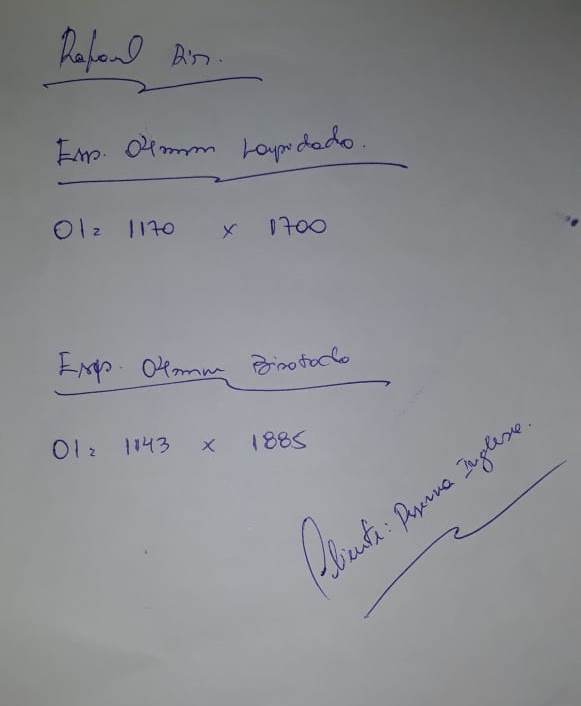 Rafael Din.
Esp. 04mm Lapidado.
01= 1170 x 1700
Esp. 04mm Bisotado
01= 1143 x 1885
Cliente: Reserva Inglesa.